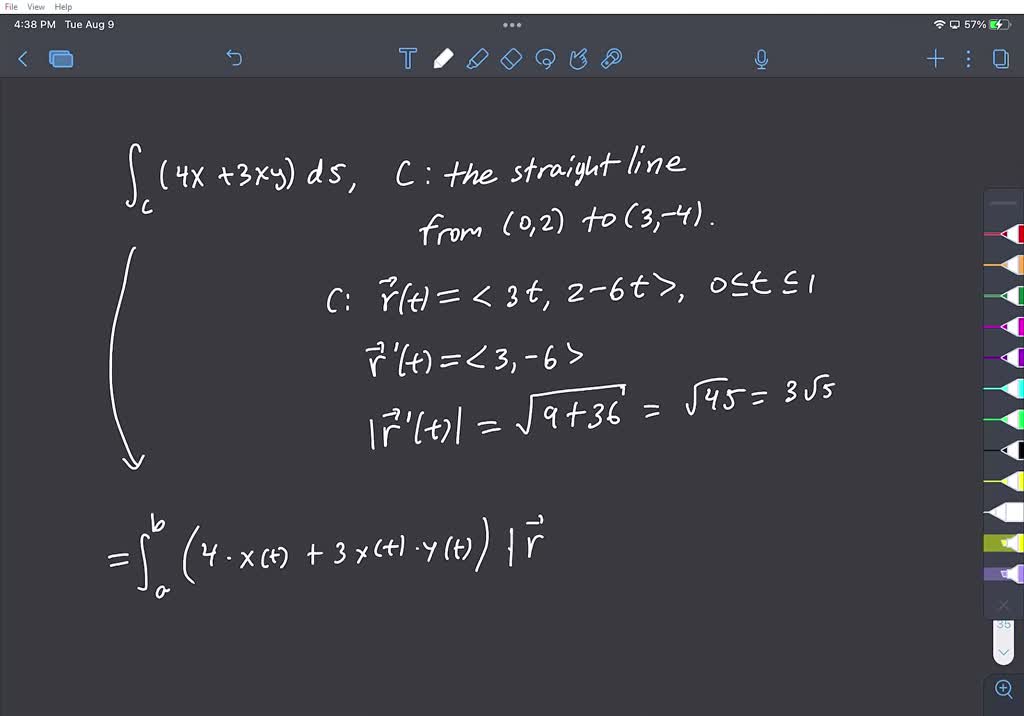 File View Help
4:38 PM Tue Aug 9
57%
T
∫_C (4x + 3xy) ds, C: the straight line
from (0,2) to (3,-4).
C: r⃗(t) = < 3t, 2-6t >, 0 ≤ t ≤ 1
r⃗'(t) = < 3, -6 >
|r⃗'(t)| = √(9+36) = √45 = 3√5
= ∫_a^b (4 · x(t) + 3x(t) · y(t)) |r⃗
35